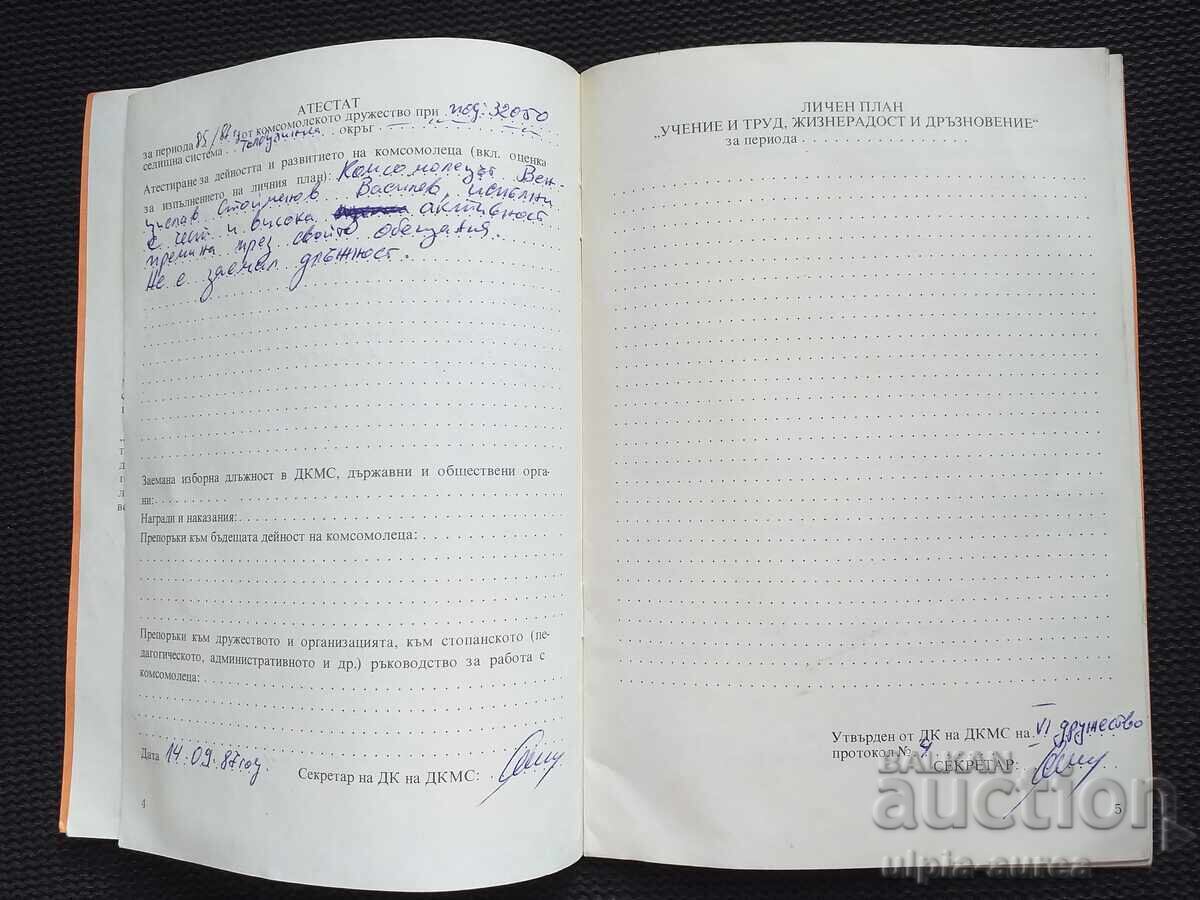 АТЕСТАТ
за периода 85/87 г. от комсомолското дружество при под. 32050
селищна система . . Толбухин . . окръг
Атестиране за дейността и развитието на комсомолеца (вкл. оценка
за изпълнението на личния план): Комсомолецът Вен-
цислав Стоименов Василев, изпълни
с чест и висока активност
премина през своите обещания.
Не е заемал длъжност.
Заемана изборна длъжност в ДКМС, държавни и обществени орга-
ни:
Награди и наказания:
Препоръки към бъдещата дейност на комсомолеца:
Препоръки към дружеството и организацията, към стопанското (пе-
дагогическото, административното и др.) ръководство за работа с
комсомолеца:
Дата 14.09.87 год
Секретар на ДК на ДКМС:
4
ЛИЧЕН ПЛАН
„УЧЕНИЕ И ТРУД, ЖИЗНЕРАДОСТ И ДРЪЗНОВЕНИЕ“
за периода
Утвърден от ДК на ДКМС на VI дружество
протокол № 4
СЕКРЕТАР:
5
BALKAN
auction
ulpia-aurea